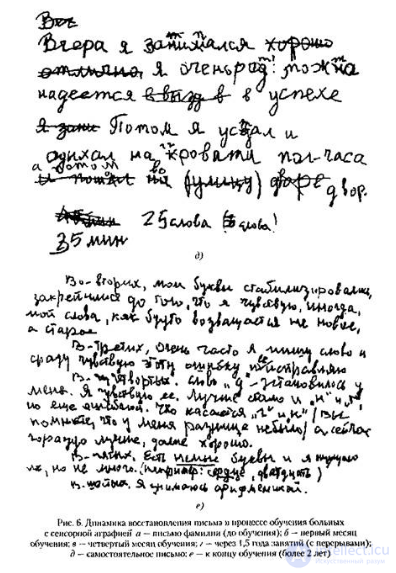 Вот
Вчера я занимался хорошо
отлично, я очень рад! можна
надеется в успехе
я зани Потом я устал и
одихал на кровати пол-часа
а потом пошел во (улицу) дворе двор.
25 слова слова!
35 мин
д)
Во-вторих, мои буквы стабилизировались,
закрепился до того, что я чувствую, иногда,
мой слова, как будто возвращается не новые,
а старое.
В-третих, очень часто я пишу слово и
сразу чувствую эту ошибку исправляю
В-четвертых. слово "д" - установилось у
меня. Я чувствую ее. Лучше стало и "н" и "т"
но еще ошибаюсь. Что касается "г" и "к" / Вы
помните, что у меня разунице небыло / а сейчас
гораздо лучше, даже хорошо.
В-пятих, Есть немые буквы и я
их, но не много. (например: сердце, двадцать)
В-шостых. Я занимаюсь арифметикой.
е)
Рис. 6. Динамика восстановления письма в процессе обучения больных
с сенсорной аграфией а — письмо фамилии (до обучения); б — первый месяц
обучения; в — четвертый месяц обучения; г — через 1,5 года занятий (с перерывами);
д — самостоятельное письмо; е — к концу обучения (более 2 лет)
intellect.icu